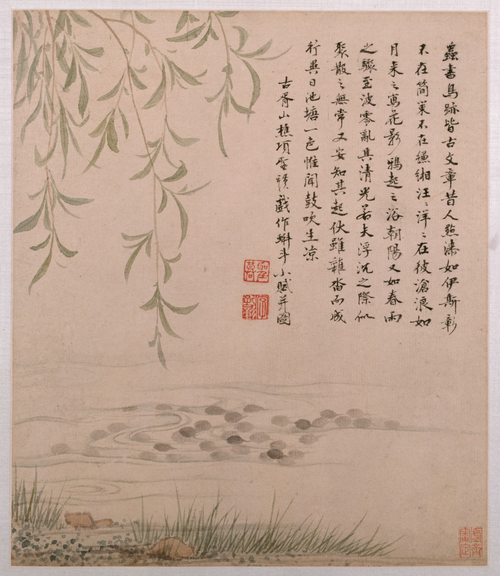 蟲書鳥跡皆古文章昔人點漆如伊斯彰
不在簡策不在縑緗汪〻洋〻在彼滄浪如
月來之寫花影鴉起之浴朝陽又如春雨
之驟至波零亂其清光若夫浮沉之際似
聚散之無常又安知其起伏雖雜沓而成
行異日池塘一色惟聞鼓吹生涼
古胥山樵項聖謨戲作蝌斗小賦并圖